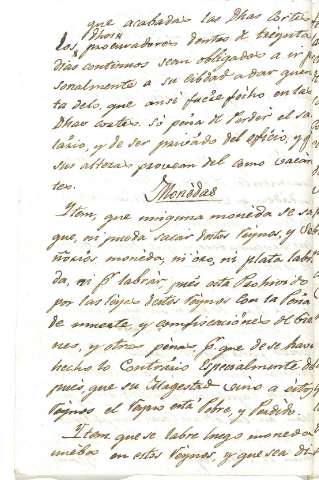 que acabadas las Dhas cortes
los dhos procuradores dentro de treynta
dias continuos sean obligados a ir per
sonalmente a su cibdad a dar quen
ta delo, que ansi fuere fecho en las
Dhas cortes. Só pena de Perder el sa
lario, y de ser privado del oficio, y
sus altezas provean del como vacan
tes.
Monedas
Item, que ninguna moneda se sa
que, ni pueda sacar destos Reynos, y Señ
ñorios moneda, ni oro, ni plata labra
da, ni pr labrar, pues está Prohivido
por las leyes destos Reynos con la Pena
de muerte, y comfiscacion de bie
nes, y otras penas. pr que de se haver
hecho lo Contrario Especialmente des
pues, que su Magestad vino a estos
Reynos el Reyno está Pobre, y Perdido.
Item que se labre luego moneda
nueba en estos Reynos, y que sea di